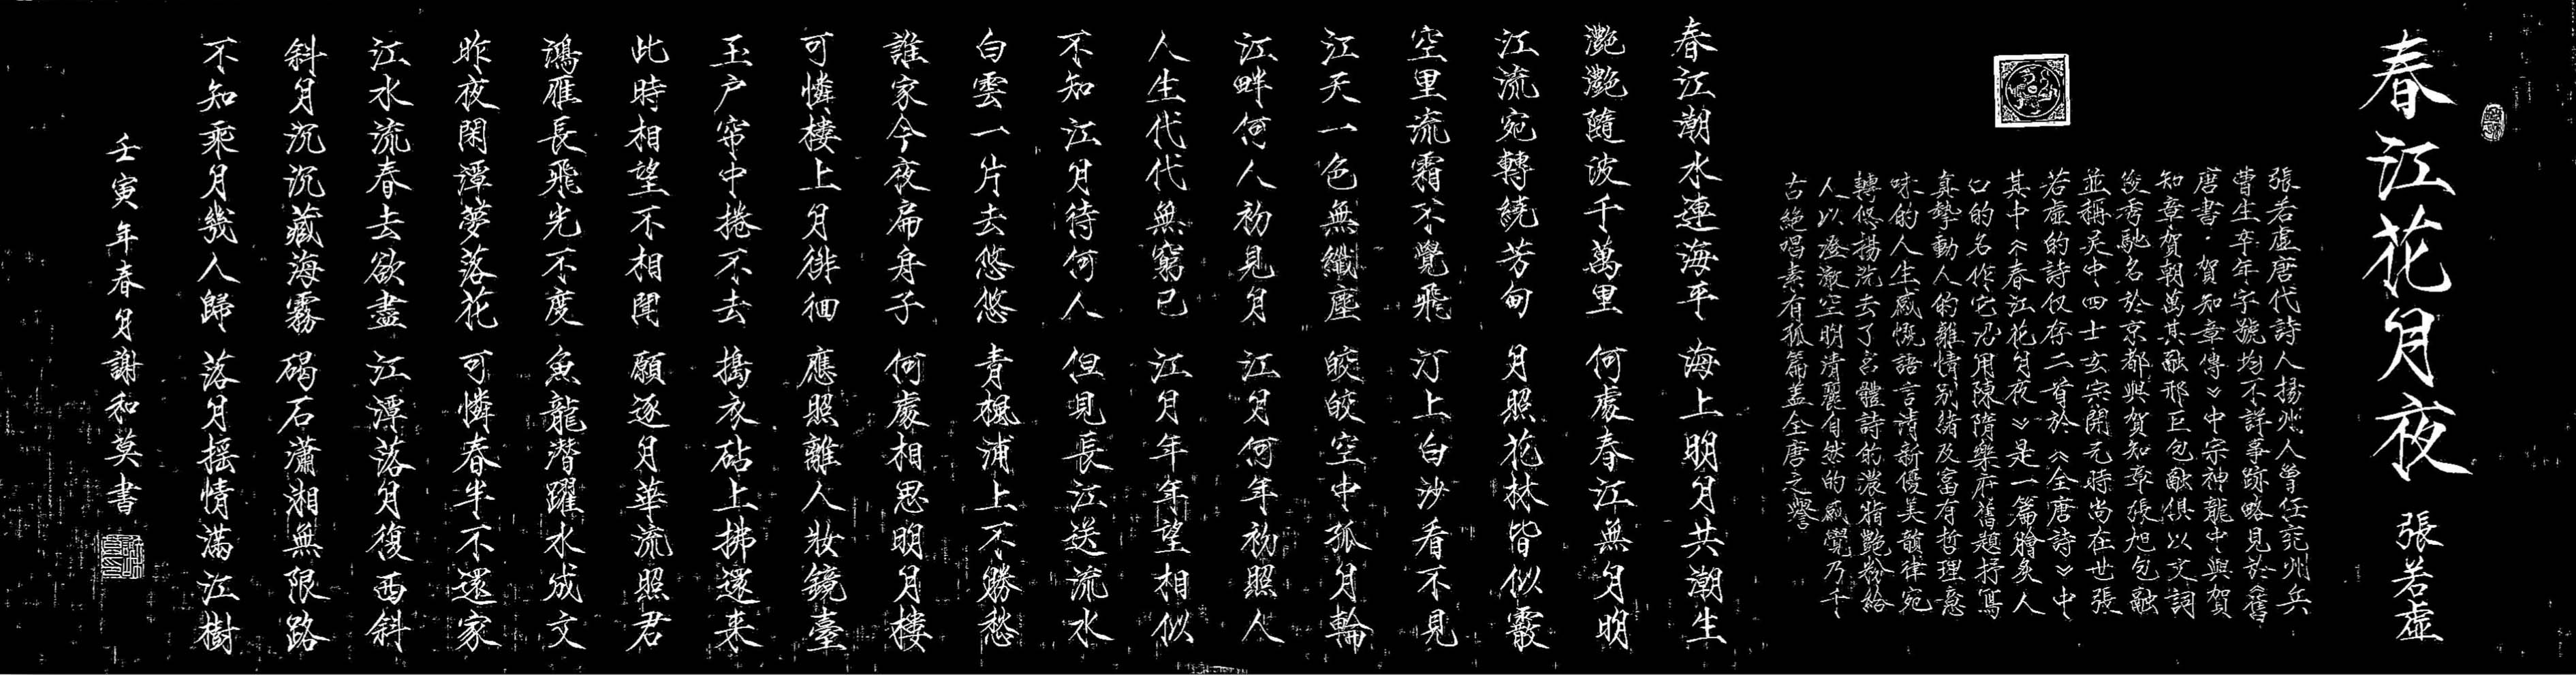 春江花月夜 張若虛
張若虛唐代詩人揚州人曾任兖州兵
曹生卒年字號均不詳事跡略見於《舊
唐書·賀知章傳》中宗神龍中與賀
知章賀朝萬其融邢巨包融俱以文詞
俊秀馳名於京都與賀知章張旭包融
並稱吴中四士玄宗開元時尚在世張
若虛的詩仅存二首於《全唐詩》中
其中《春江花月夜》是一篇膾炙人
口的名作它沿用陳隋樂府舊題抒寫
真摯動人的離情別緒及富有哲理意
味的人生感慨語言清新優美韻律宛
轉悠揚洗去了宮體詩的濃脂艷粉給
人以澄澈空明清麗自然的感覺乃千
古絶唱素有孤篇盖全唐之譽
春江潮水連海平 海上明月共潮生
灧灧隨波千萬里 何處春江無月明
江流宛轉繞芳甸 月照花林皆似霰
空里流霜不覺飛 汀上白沙看不見
江天一色無纖塵 皎皎空中孤月輪
江畔何人初見月 江月何年初照人
人生代代無窮已 江月年年望相似
不知江月待何人 但見長江送流水
白雲一片去悠悠 青楓浦上不勝愁
誰家今夜扁舟子 何處相思明月樓
可憐樓上月徘徊 應照離人妝鏡臺
玉户帘中捲不去 搗衣砧上拂還来
此時相望不相聞 願逐月華流照君
鴻雁長飛光不度 魚龍潛躍水成文
昨夜閑潭夢落花 可憐春半不還家
江水流春去欲盡 江潭落月復西斜
斜月沉沉藏海霧 碣石瀟湘無限路
不知乘月幾人歸 落月摇情滿江樹
壬寅年春月謝和莫書